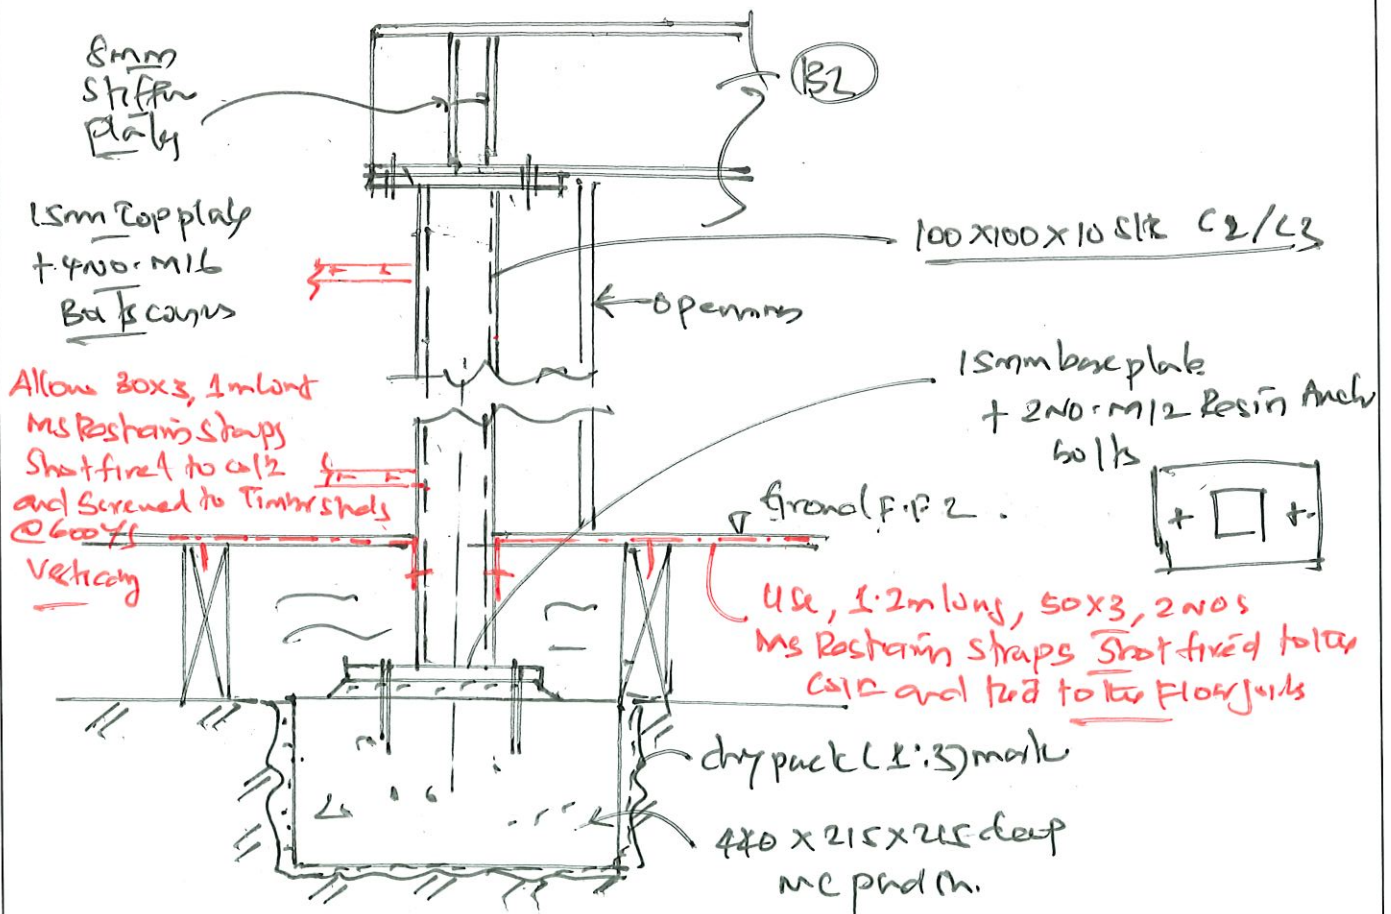 8mm
Stiffn
plates
B2
15mm Top plate
+ 4NO. M16
Bolts conns
100x100x10 SHS C2/C3
opening
Allow 30x3, 1m long
MS Restrain straps
Shot fired to col2
and Screwed to Timber studs
@600 %
Vertically
15mm base plate
+ 2NO. M12 Resin Anch
bolts
Ground F.F.L.
Use, 1.2m long, 50x3, 2NOs
MS Restrain straps Shot fired to the
Col and tied to the Floor joists
dry pack (1:3)
440 x 215 x 215 deep
MC pad